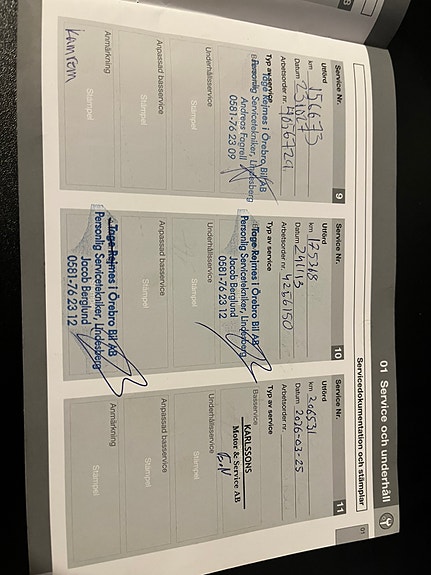 01 Service och underhåll
Servicedokumentation och stämplar
01
Service Nr.
9
Utförd
km 156673
Datum 231027
Arbetsorder nr.
Typ av service
Tage Rejmes i Örebro Bil AB
Personlig Servicetekniker, Lindesberg
Andreas Fagrell
0581-76 23 09
Underhållsservice
Stämpel
Anpassad basservice
Stämpel
Anmärkning
Stämpel
KAMREM
Service Nr.
10
Utförd
km 175368
Datum 241113
Arbetsorder nr. 4256150
Typ av service
Tage Rejmes i Örebro Bil AB
Personlig Servicetekniker, Lindesberg
Jacob Berglund
0581-76 23 12
Underhållsservice
Stämpel
Anpassad basservice
Stämpel
Tage Rejmes i Örebro Bil AB
Personlig Servicetekniker, Lindesberg
Jacob Berglund
0581-76 23 12
Service Nr.
11
Utförd
km 206531
Datum 2026-03-25
Arbetsorder nr.
Typ av service
Basservice
KARLSSONS
Motor & Service AB
Underhållsservice
Stämpel
Anpassad basservice
Stämpel
Anmärkning
Stämpel